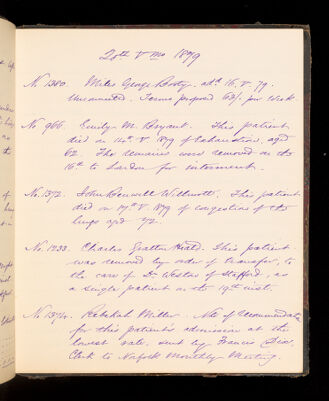 20th V mo 1879
No. 1380. Miles George Booty. adm 16. V. 79.
Unconnected. Terms proposed 63/- per week.
No. 966. Emily M. Bryant. This patient
died on 14th. V. 1879 of Exhaustion, aged
62. The remains were removed on the
16th to London for interment.
No. 1372. John Willmott. This patient
died on 19th V. 1879 of congestion of the
lungs aged 72.
No. 1233. Charles Heald. This patient
was removed by order of transfer, to
the care of Dr of Stafford, as
a single patient on the 19th inst.
No. 1374. Rebekah Miller. Note of recommendation
for this patient's admission at the
lowest rate, sent by Francis Dix,
Clerk to Norfolk Monthly Meeting.